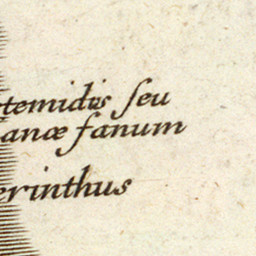 temidis ſeu
anæ fanum
erinthus